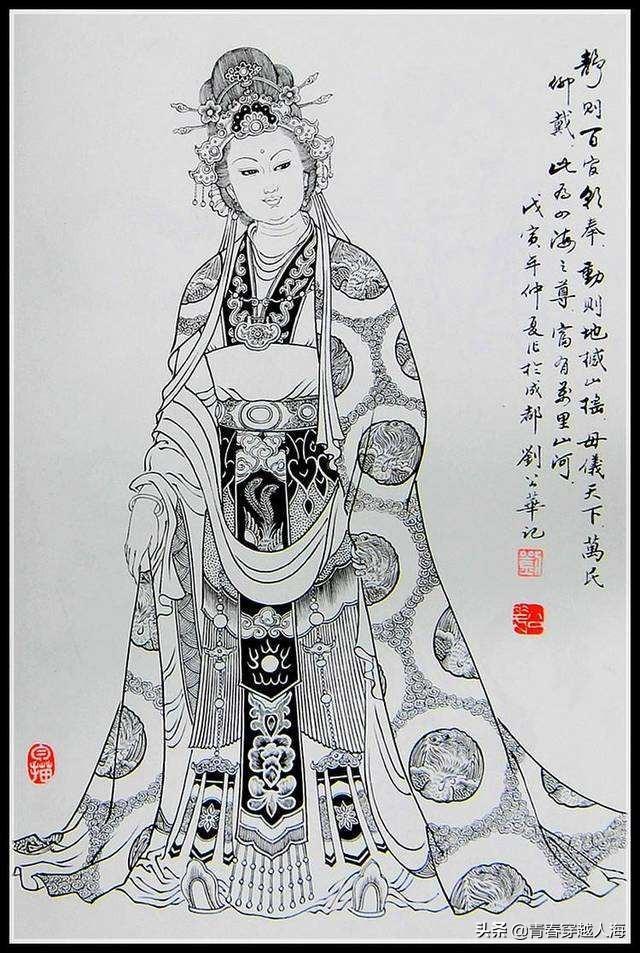 静则百官朝奉、動则地撼山摇、母儀天下、萬民
仰戴、此为四海之尊、富有萬里山河
戊寅年仲夏作於成都 劉公華记
白描
头条 @青春穿越人海